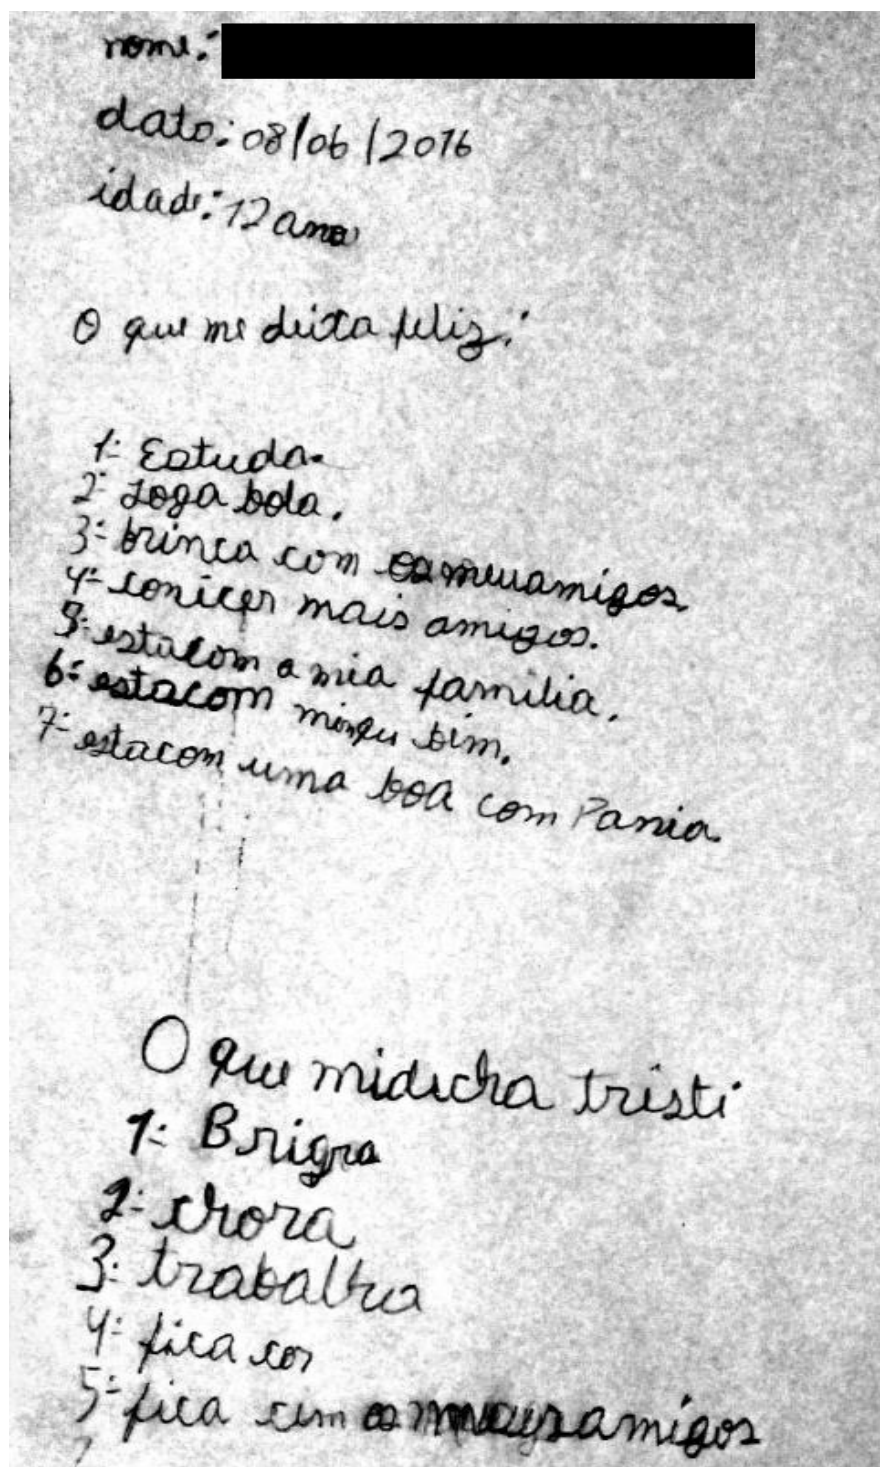 nome:
data: 08/06/2016
idade: 12 ano
O que me deixa feliz:
1- Estuda.
2- Joga bola.
3- brinca com os meus amigos
4- conicer mais amigos.
5- estacom a mia familia.
6- estacom bim.
7- estacom uma boa com Pania
O que midecha tristi
1- Briga
2- chora
3- trabalha
4- fica
5- fica sem os meus amigos